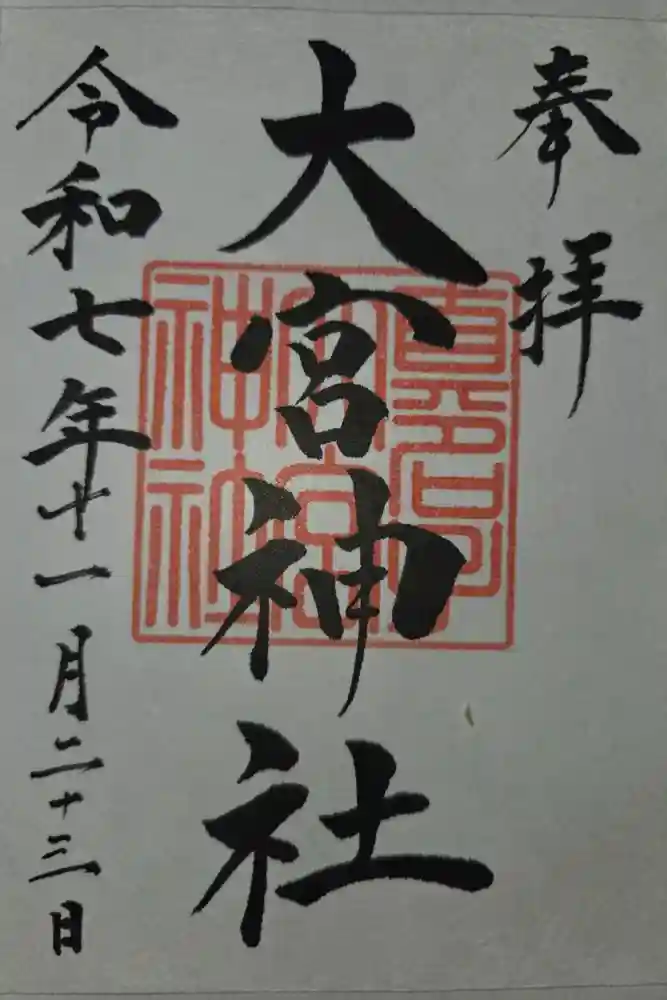 奉拝
大宮神社
令和七年十一月二十三日
神社